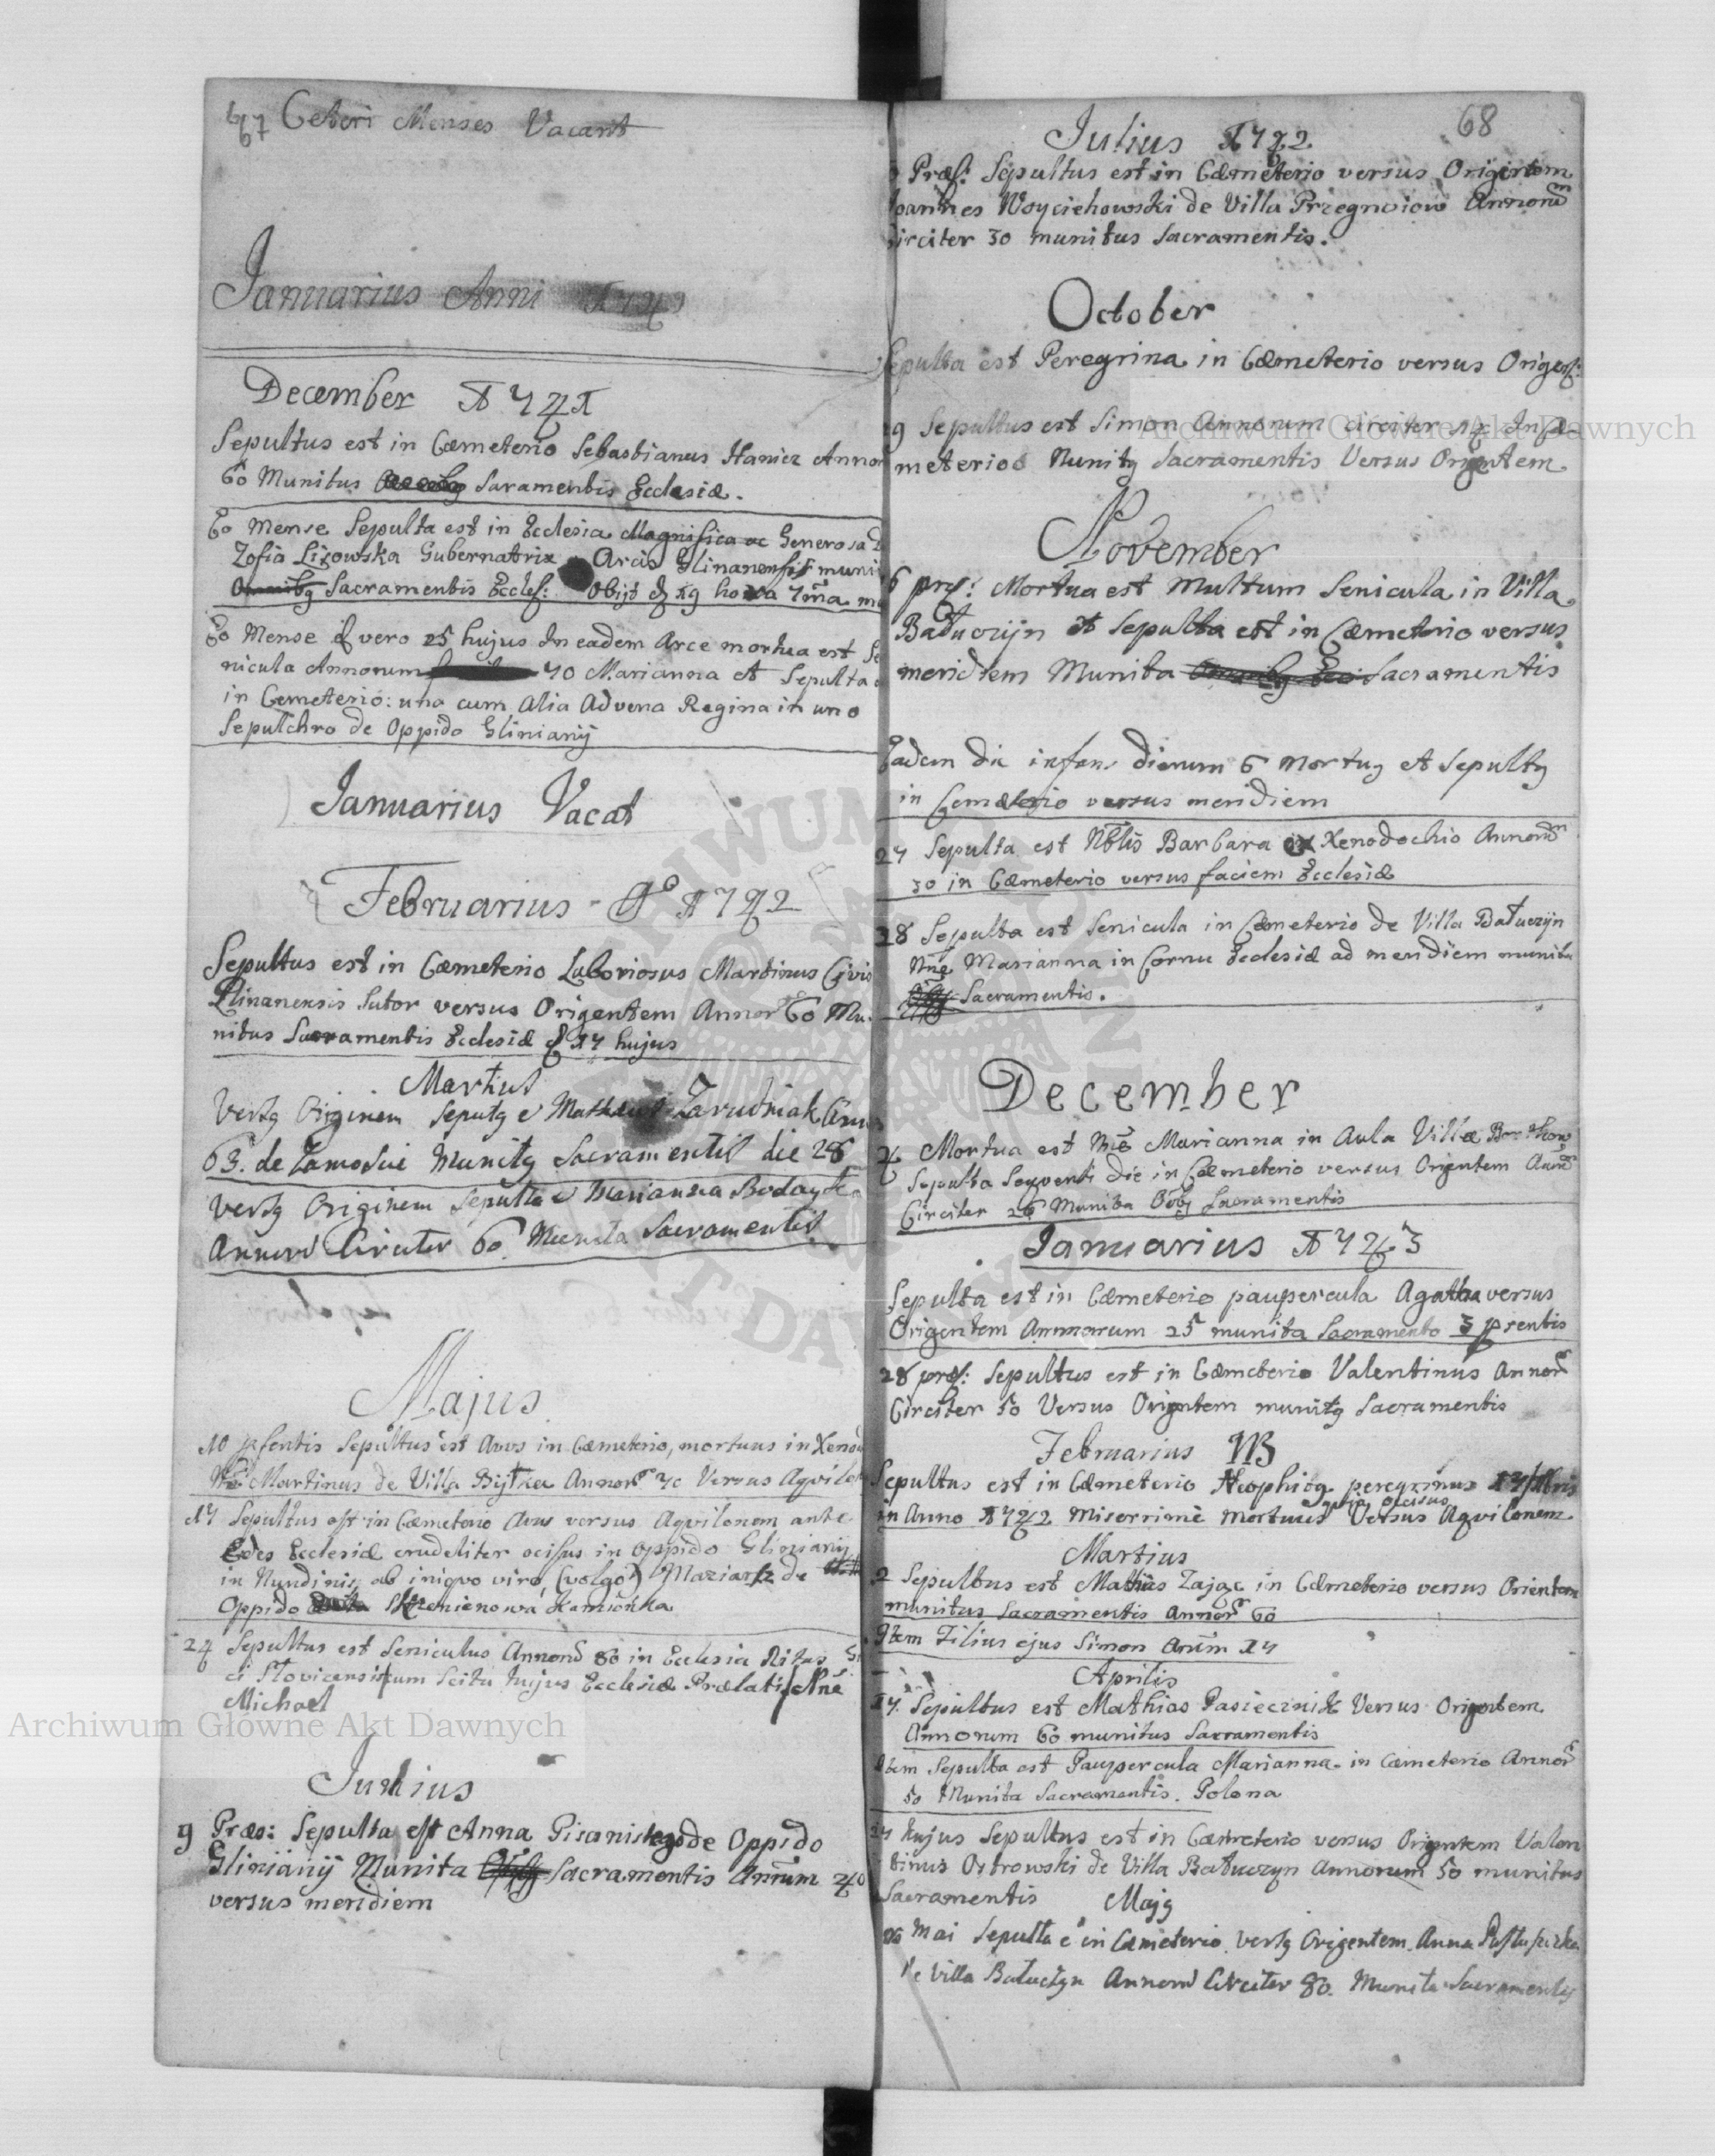 67 Ceteri Menses Vacant
Januarius Anni 1742
December 1741
Sepultus est in Cæmeterio Sebastianus Haniez Annor
60 Munitus Saramentis Ecclesiæ.
Eo Mense Sepulta est in Ecclesia Magnifica ac Generosa D
Zofia Lisowska Gubernatrix Arcis Glinanensis muni
Omnibg Sacramentis Eccles: Obijt d 19 hora 7ma
Eo Mense d vero 25 hujus In eadem Arce mortua est Se
nicula Annorum 70 Marianna et Sepulta
in Cemeterio: una cum Alia Advena Regina in uno
Sepulchro de Oppido Glinianij
Januarius Vacat
Februarius Ao 1742
Sepultus est in Cæmeterio Laboriosus Martinus Civis
Glinanensis Sutor versus Origentem Annor 60 Mu.
nitus Sacramentis Ecclesiæ d 17 hujus
Martius
Versg Originem Sepultg e Matheus Zarudniak Annor
63. de Zamoscie Munitg Sacramentis die 28
Versg Originem Sepulta e Marianna
Annorū Circiter 60 Munita Sacramentis
Majus
10 pſentis Sepultus est Avus in Cæmeterio, mortuus in Xeno
Martinus de Villa Bijtka Annor Versus Aqvilon
17 Sepultus est in Cæmeterio Avus versus Aqvilonem ante
Ædes Ecclesiæ crudeliter ocisus in oppido Glinianij
in Nundinis ab iniqvo viro, (volgo) Maziarz de
Oppido Kamionka
24 Sepultus est Seniculus Annorū 80 in Ecclesia Ritus
cum Scitu hujus Ecclesiæ Prælati
Michael
Junius
9 Præs: Sepulta est Anna de Oppido
Glinianij Munita Sacramentis Annum 40
versus meridiem
68
Julius 1742
Præs: Sepultus est in Cæmeterio versus Origentem
Joannes Woyciehowski de Villa Przegnoiow Annorū
Circiter 30 munitus Sacramentis.
October
Sepulta est Peregrina in Cæmeterio versus Origen:
19 Sepultus est Simon Annorum circiter 14 In Cæ
meterio Munitg Sacramentis Versus Origentem
November
6 præs: Mortua est Multum Senicula in Villa
Batuczijn et Sepulta est in Cæmeterio versus
meridiem Munita Sacramentis
Eadem die infans dierum 6 Mortug et Sepultg
in Cemeterio versus meridiem
27 Sepulta est Nblis Barbara ex Xenodochio Annorū
30 in Cæmeterio versus faciem Ecclesiæ
28 Sepulta est Senicula in Cæmeterio de Villa Batuczijn
Nne Marianna in Cornu Ecclesiæ ad meridiem munita
Sacramentis.
December
4 Mortua est Nne Marianna in Aula Villæ
Sepulta Seqventi die in Cæmeterio versus Orientem Annor
Circiter 26 Munita Sacramentis
Januarius 1743
Sepulta est in Cæmeterio paupercula Agatha versus
Origentem Annorum 25 munita Sacramento 3 prentis
28 præs: Sepultus est in Cæmeterio Valentinus Annor
Circiter 50 Versus Origentem munitg Sacramentis
Februarius NB
Sepultus est in Cæmeterio Neophitg peregrinus 17
in Anno 1742 Miserrimè Mortuus qvia occisus Versus Aqvilonem
Martius
2 Sepultus est Mathias Zając in Cæmeterio versus Orientem
munitus Sacramentis Annor 60
Item Filius ejus Simon Annum 17
Aprilis
17. Sepultus est Mathias Pasiecznik Versus Origentem
Annorum 60 munitus Sacramentis
Item Sepulta est Paupercula Marianna in Cæmeterio Annor
50 Munita Sacramentis. Polona
27 hujus Sepultus est in Cæmeterio versus Origentem Valen
tinus Ostrowski de Villa Batuczyn Annorum 50 munitus
Sacramentis Majg
26 Mai Sepulta e in Cæmeterio versg Origentem Anna
de Villa Batuczyn Annorū Circiter 80. Munita Sacramentis
Archiwum Główne Akt Dawnych
Archiwum Główne Akt Dawnych